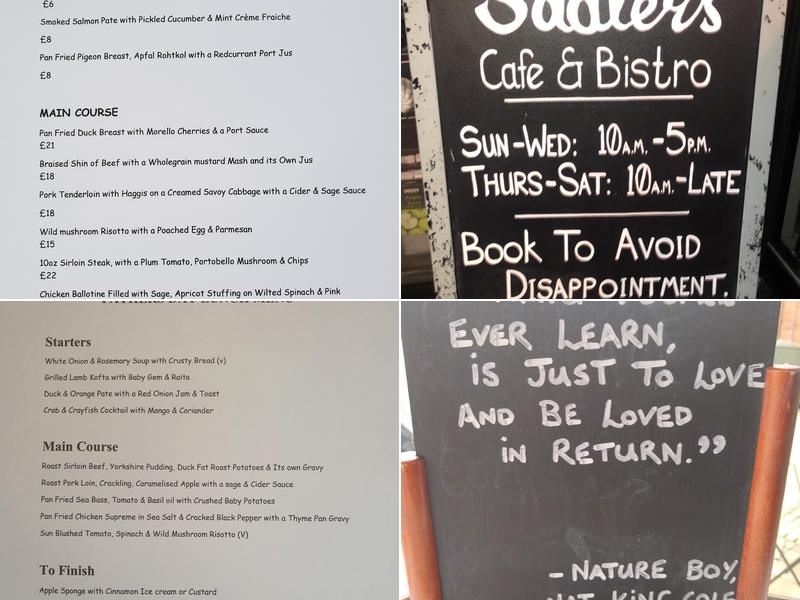 £6
Smoked Salmon Pate with Pickled Cucumber & Mint Crème Fraiche
£8
Pan Fried Pigeon Breast, Apfal Rohtkol with a Redcurrant Port Jus
£8
MAIN COURSE
Pan Fried Duck Breast with Morello Cherries & a Port Sauce
£21
Braised Shin of Beef with a Wholegrain mustard Mash and its Own Jus
£18
Pork Tenderloin with Haggis on a Creamed Savoy Cabbage with a Cider & Sage Sauce
£18
Wild mushroom Risotto with a Poached Egg & Parmesan
£15
10oz Sirloin Steak, with a Plum Tomato, Portobello Mushroom & Chips
£22
Chicken Ballotine Filled with Sage, Apricot Stuffing on Wilted Spinach & Pink
Sadlers
Cafe & Bistro
SUN-WED: 10A.M.-5P.M.
THURS-SAT: 10A.M.-LATE
BOOK TO AVOID
DISAPPOINTMENT.
FATHERS DAY LUNCH MENU
Starters
White Onion & Rosemary Soup with Crusty Bread (v)
Grilled Lamb Kofta with Baby Gem & Raita
Duck & Orange Pate with a Red Onion Jam & Toast
Crab & Crayfish Cocktail with Mango & Coriander
Main Course
Roast Sirloin Beef, Yorkshire Pudding, Duck Fat Roast Potatoes & Its own Gravy
Roast Pork Loin, Crackling, Caramelised Apple with a sage & Cider Sauce
Pan Fried Sea Bass, Tomato & Basil oil with Crushed Baby Potatoes
Pan Fried Chicken Supreme in Sea Salt & Cracked Black Pepper with a Thyme Pan Gravy
Sun Blushed Tomato, Spinach & Wild Mushroom Risotto (V)
To Finish
Apple Sponge with Cinnamon Ice cream or Custard
EVER LEARN,
IS JUST TO LOVE
AND BE LOVED
IN RETURN.”
- NATURE BOY,
NAT KING COLE